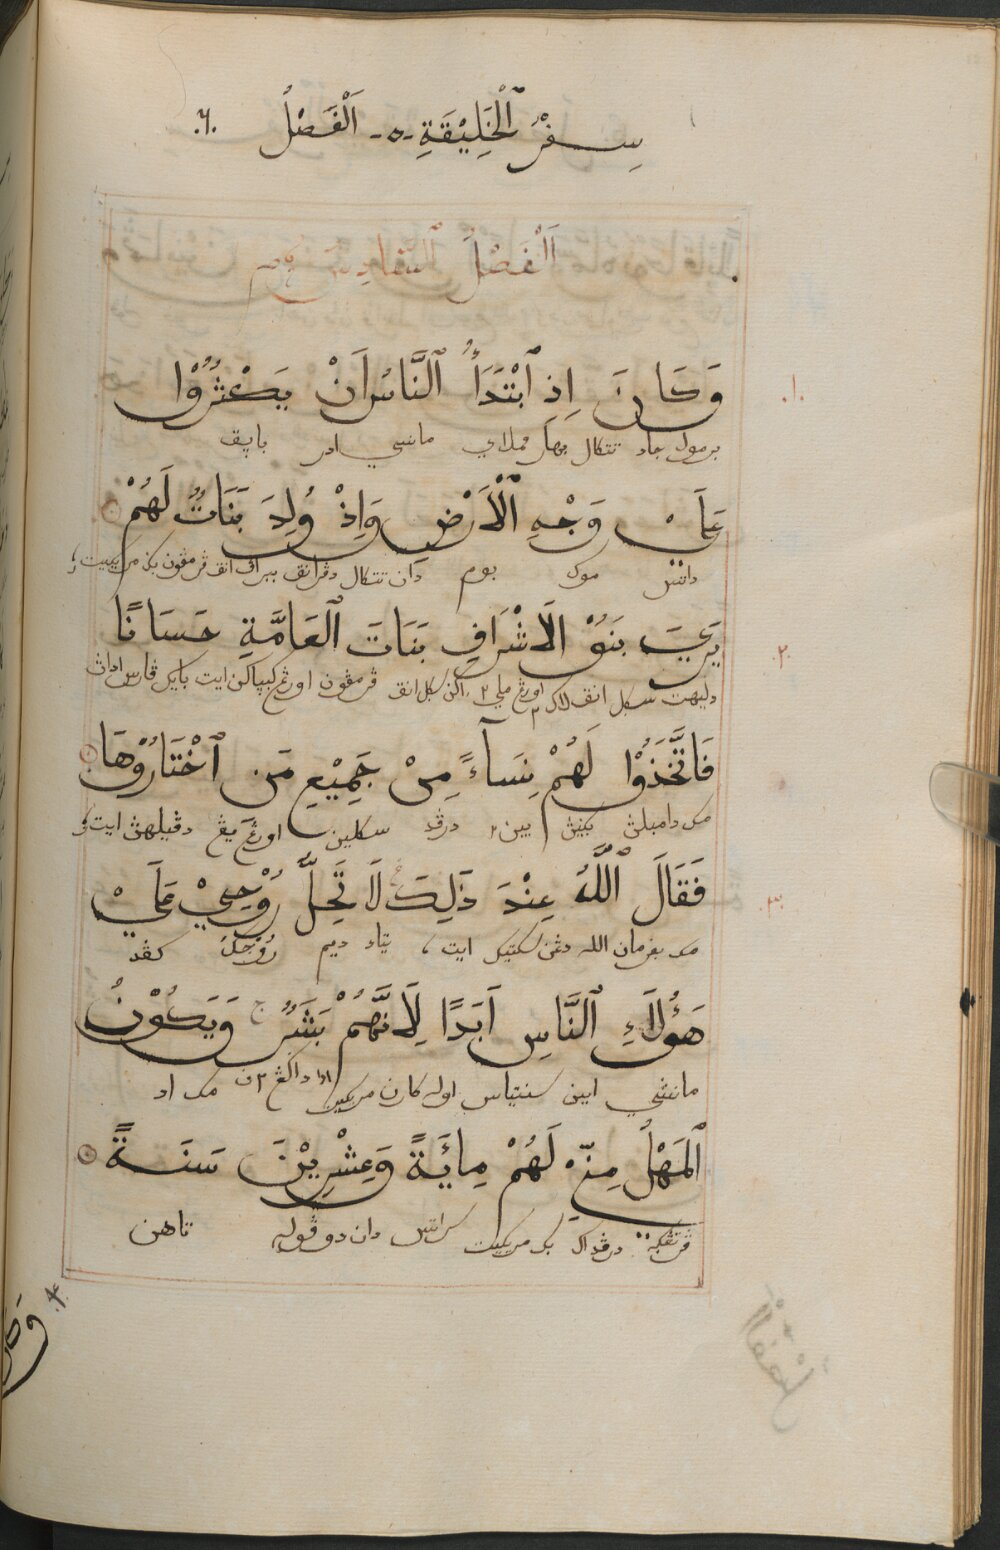 سِفْرُ ٱلْخَلِيْقَةِ -٥- اَلْفَصْلُ .٦.
اَلْفَصْلُ ٱلسَّادِسُ
.١.
وَكَانَ اِذِ ٱبْتَدَأُ ٱلنَّاسُ اَنْ يَكْثُرُوْا
برمول جاد تتكال مهاڤملاي مانسي ادر باپق
عَلَىْ وَجْهِ ٱلْاَرْضِ وَاِذْ وُلِدَ بَنَاتٌ لَهُمْ
داتس موك بوم دان تتكال دڤرانق
.٢.
يَرَىَ بَنُوْ الَاشْرَافِ بَنَاتَ ٱلعَامَّةِ حَسَانًا
دليهت سكل انق لاك٢ اورڠ ملي٢ اكن سكل انق ڤرمڤون اورڠ كپاكن ايت بايك ڤارس اداڽ
فَاتَّخَذُوْا لَهُمْ نِسَآءً مِنْ جَمِيْعِ مَن ٱخْتَارُوْهَا
مك دامبلڽ بكيڽ بين٢ درڤد سكلين اورڠ يڠ دڤيلهڽ ايت
.٣.
فَقَالَ ٱللّٰهُ عِنْدَ ذَلِكَ لَا تَحِلُّ رُوْحِيْ عَلَىْ
مك بفرمان الله دڠن كتيك ايت، تياد ديم روحكُ كڤد
هَؤُلَاءِ ٱلنَّاسِ اَبَدًا لِاَنَّهُمْ بَشَرٌ وَيَكُوْنُ
مانسي اين سنتياس اوله كارن مريكيت اد داڬڠ٢ن مك اد
ٱلمَهْلُ مِنِّيْ لَهُمْ مِائَةً وَعِشْرِيْنَ سَنَةً
ڤرتڠڬوهن درڤداك بك مريكيت سراتس دان دو ڤوله تاهن
.٤.
وَكَانَ